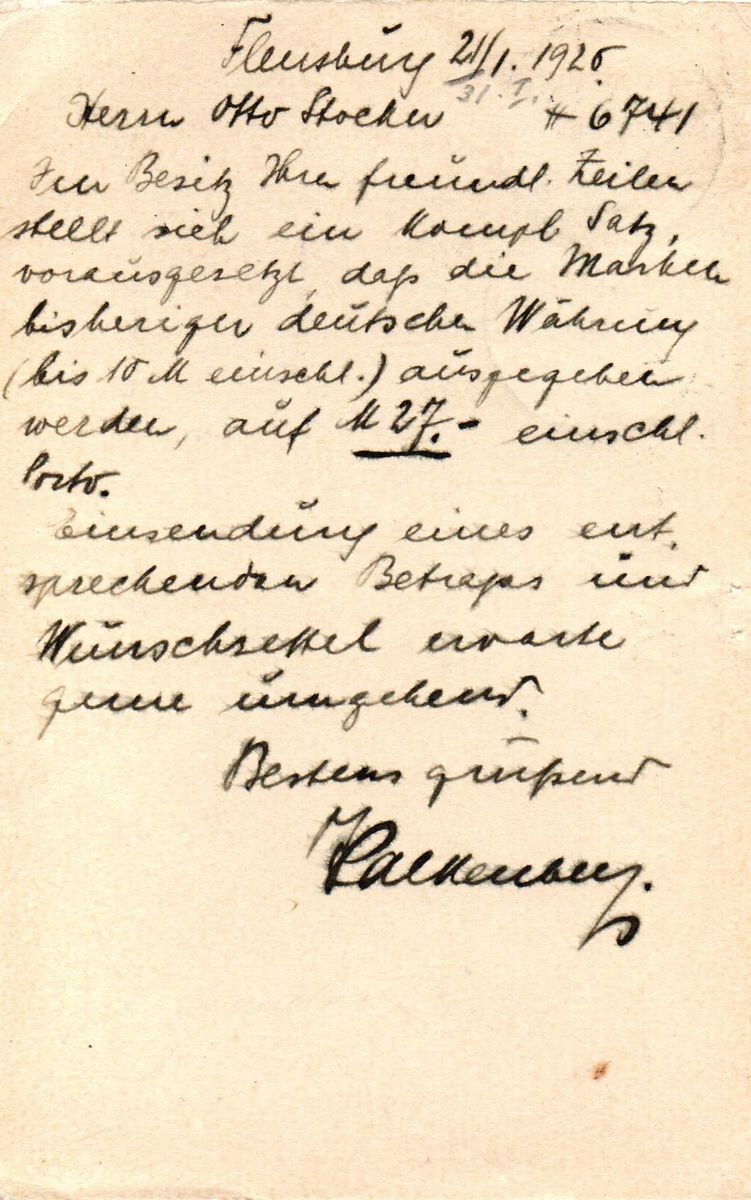 Flensburg 21/1. 1920
31. I.
Herrn Otto Stocker # 6741
Im Besitz Ihrer freundl. Zeilen
stellt sich ein kompl Satz,
vorausgesetzt, daß die Marken
bisheriger deutscher Währung
(bis 10 M einschl.) ausgegeben
werden, auf M 27.- einschl.
Porto.
Einsendung eines ent-
sprechenden Betrags und
Wunschzettel erwarte
gerne umgehend.
Bestens grüßend